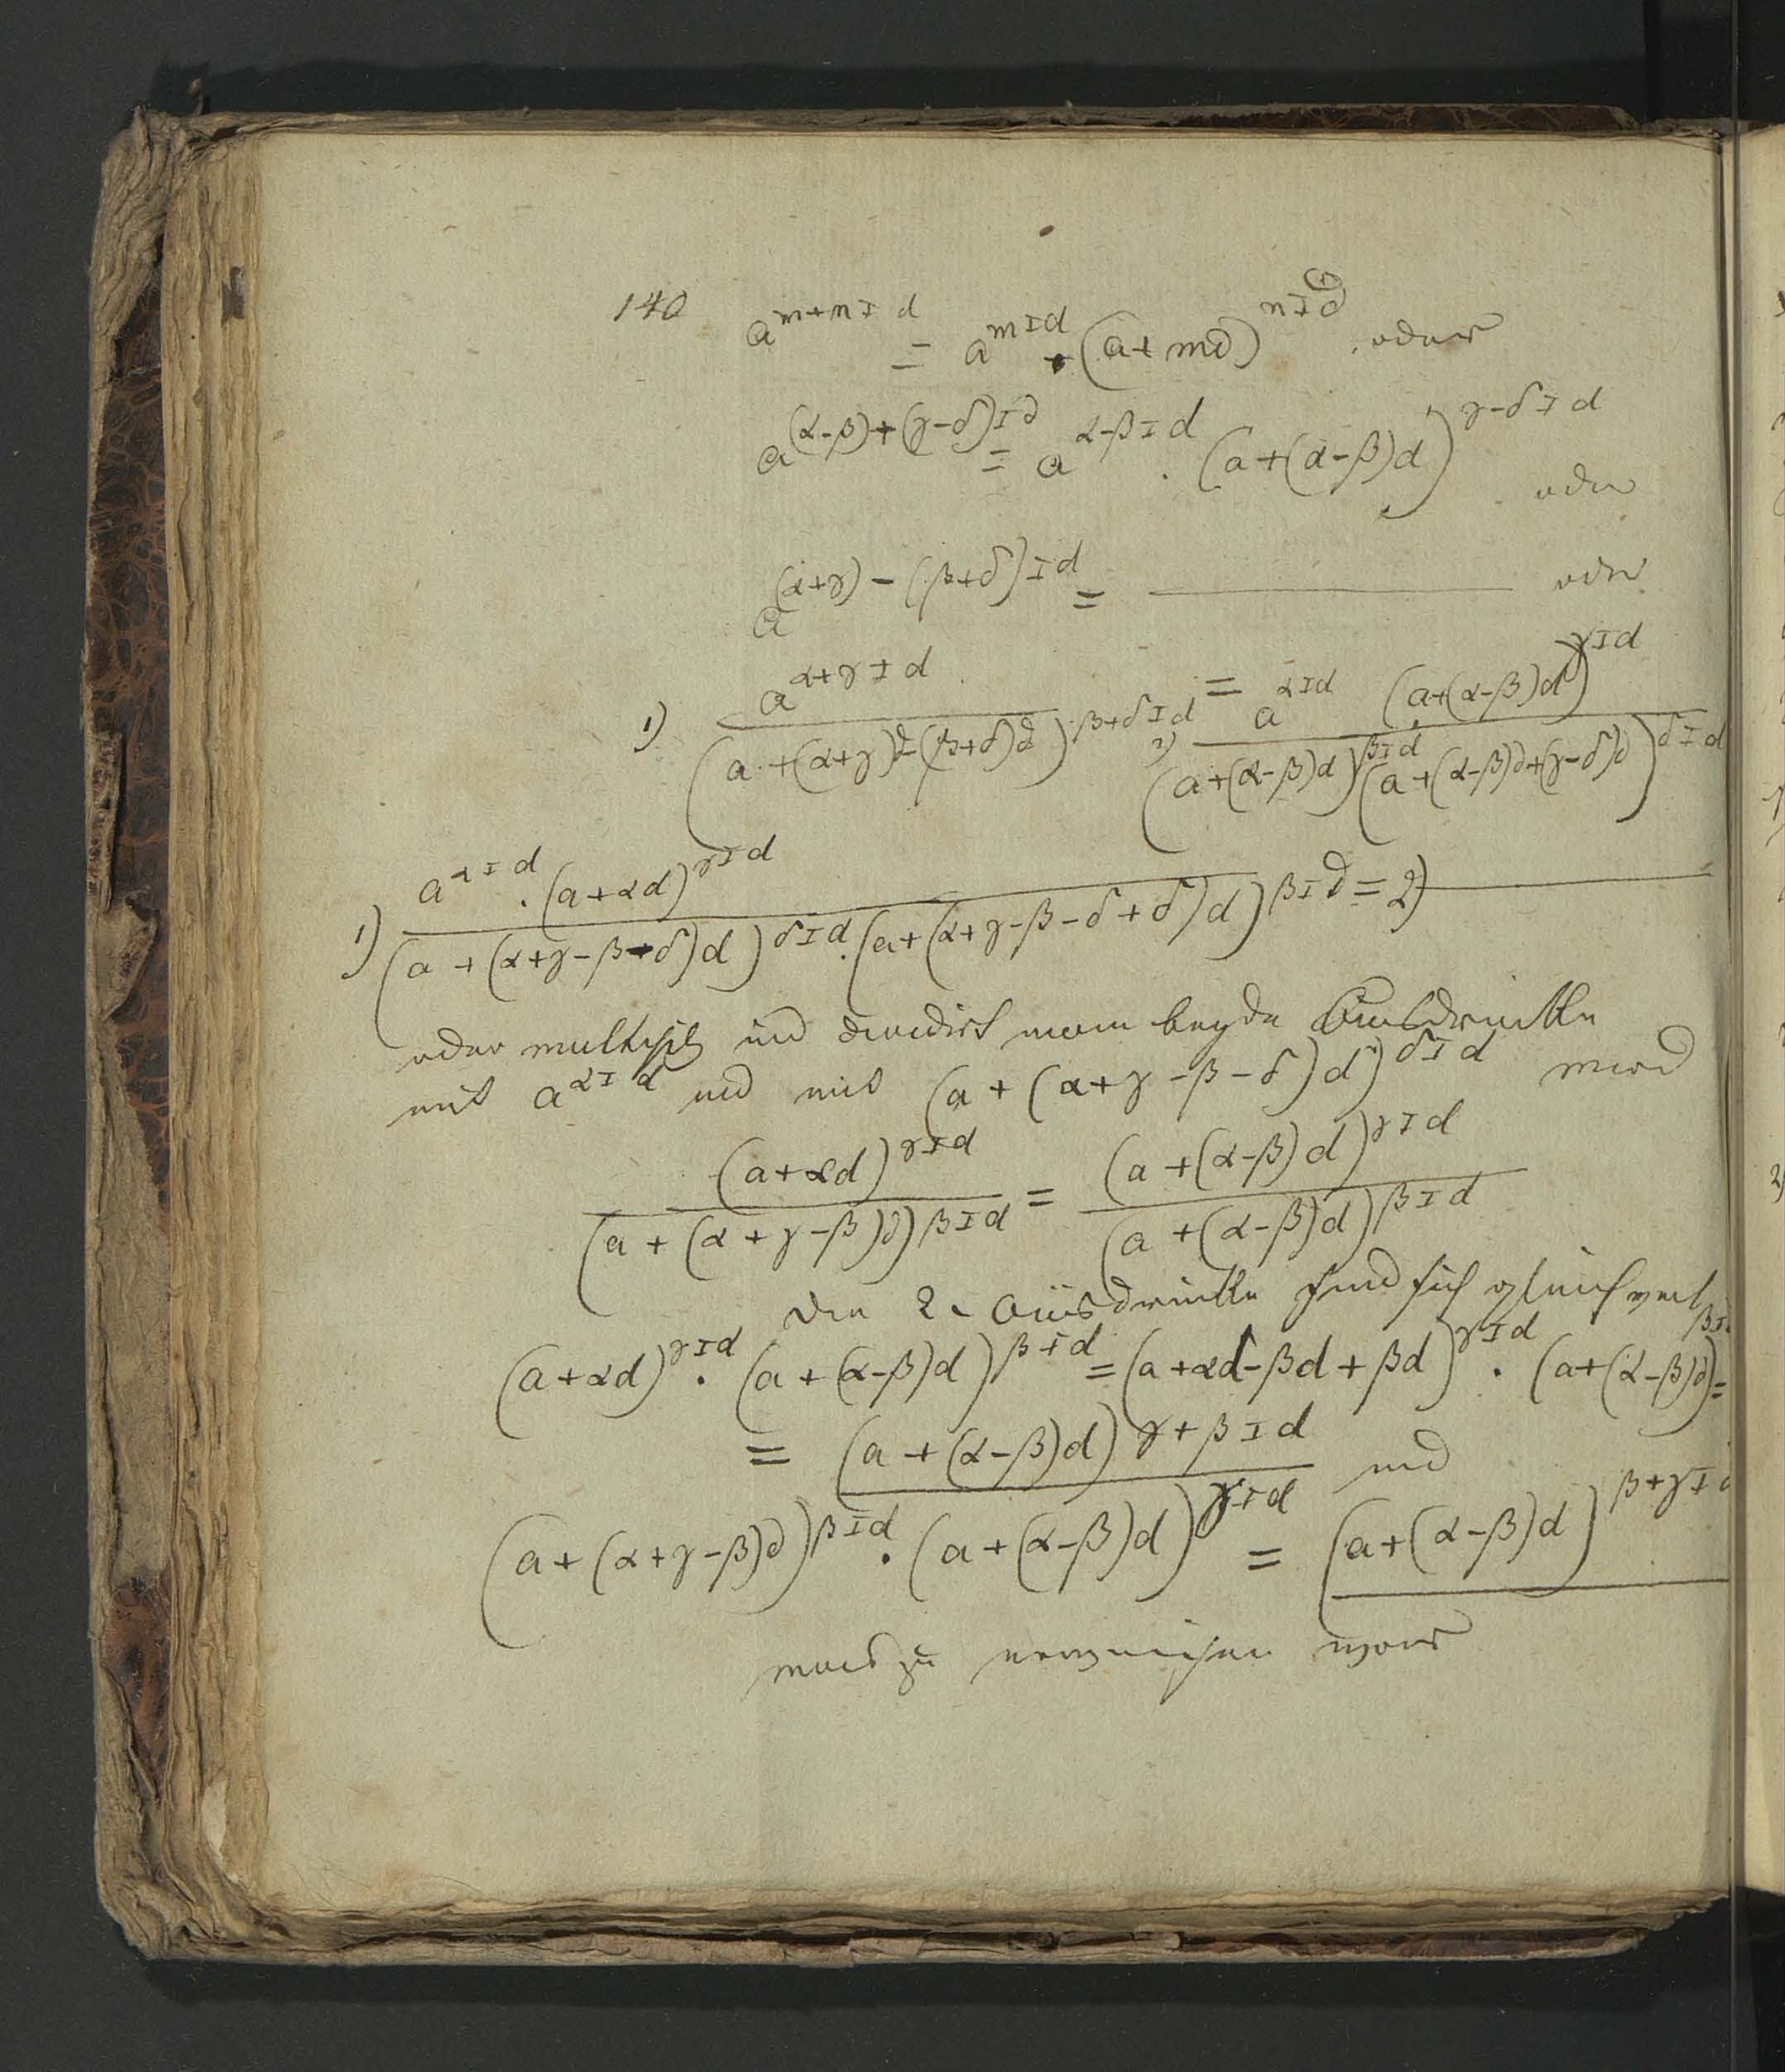 140 a^{m+n I d} = a^{m I d} · (a + md)^{n I d}, oder
a^{(α-β)+(γ-δ) I d} = a^{α-β I d} . (a+(α-β)d)^{γ-δ I d} oder
a^{(α+γ)-(β+δ) I d} = ———— oder
1) a^{α+γ I d} / (a+(α+γ)d-(β+δ)d)^{β+δ I d} = 2) a^{α I d} (a+(α-β)d)^{γ I d} / (a+(α-β)d)^{β I d} (a+(α-β)d+(γ-δ)d)^{δ I d}
1) a^{α I d} . (a+αd)^{γ I d} / (a+(α+γ-β-δ)d)^{δ I d} . (a+(α+γ-β-δ+δ)d)^{β I d} = 2) ————
oder multipliz und dividirt man beyde Ausdrücke
mit a^{α I d} und mit (a+(α+γ-β-δ)d)^{δ I d} wird
(a+αd)^{γ I d} / (a+(α+γ-β)d)^{β I d} = (a+(α-β)d)^{γ I d} / (a+(α-β)d)^{β I d}
die 2 Ausdrücke sind sich gleich weil
(a+αd)^{γ I d} . (a+(α-β)d)^{β I d} = (a+αd-βd+βd)^{γ I d} . (a+(α-β)d)^{β I} =
= (a+(α-β)d)^{γ+β I d} und
(a+(α+γ-β)d)^{β I d} . (a+(α-β)d)^{γ I d} = (a+(α-β)d)^{β+γ I d}
was zu erweisen war